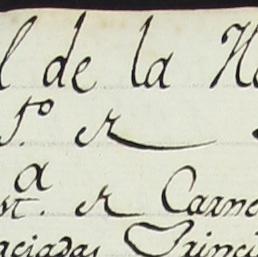 l de la H
1.º en
a
st. en Carne
aciadas Princi